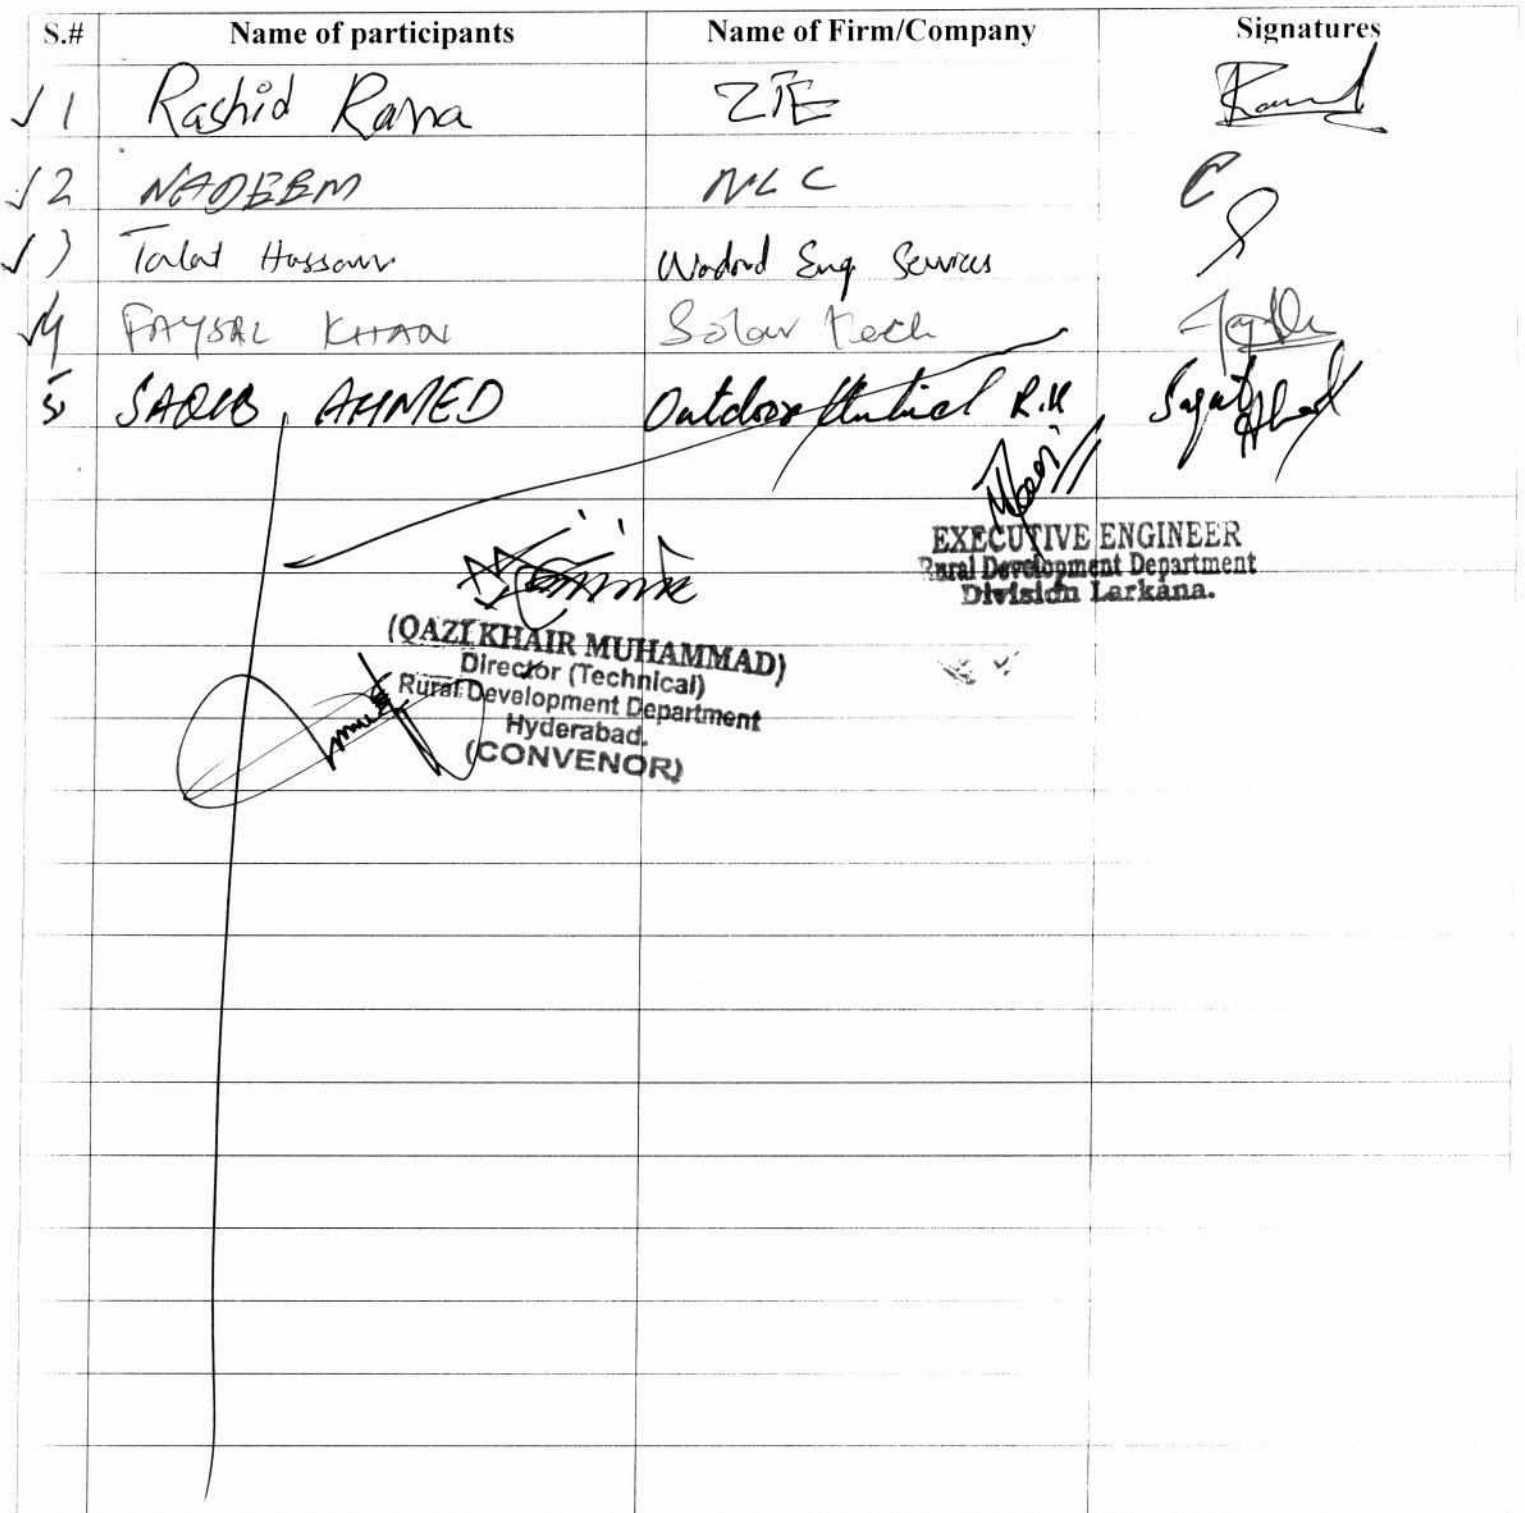 S.# Name of participants Name of Firm/Company Signatures
1 Rashid Rana ZTE
2 NADEEM NLC
3 Talat Hussain Engg Services
4 FAYSAL KHAN Solar Tech
5 SAQIB AHMED Outdoor R.K Saqib Ahmed
EXECUTIVE ENGINEER
Rural Development Department
Division Larkana.
(QAZI KHAIR MUHAMMAD)
Director (Technical)
Rural Development Department
Hyderabad.
(CONVENOR)